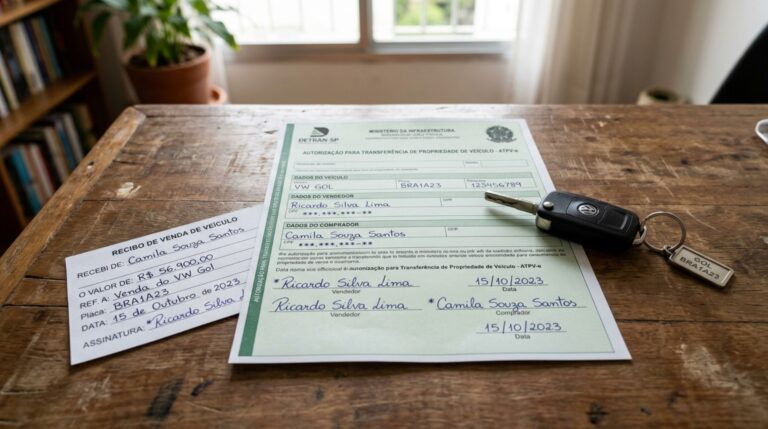 RECIBO DE VENDA DE VEÍCULO
RECEBI DE: Camila Souza Santos
O VALOR DE: R$ 56.900,00
REF A: Venda do VW Gol
Placa: BRA1A23
DATA: 15 de Outubro de 2023
ASSINATURA: *Ricardo Silva Lima
DETRAN-SP
MINISTÉRIO DA INFRAESTRUTURA
AUTORIZAÇÃO PARA TRANSFERÊNCIA DE PROPRIEDADE DE VEÍCULO - ATPV-e
DADOS DO VEÍCULO
VW GOL BRA1A23 123456789
DADOS DO VENDEDOR
Ricardo Silva Lima
CPF ***.***.***-**
DADOS DO COMPRADOR
Camila Souza Santos
CPF ***.***.***-**
autorização para Transferência de Propriedade de Veículo - ATPV-e
*Ricardo Silva Lima 15/10/2023
Vendedor Data
Ricardo Silva Lima *Camila Souza Santos
Vendedor Comprador
15/10/2023
Data
GOL
BRA1A23